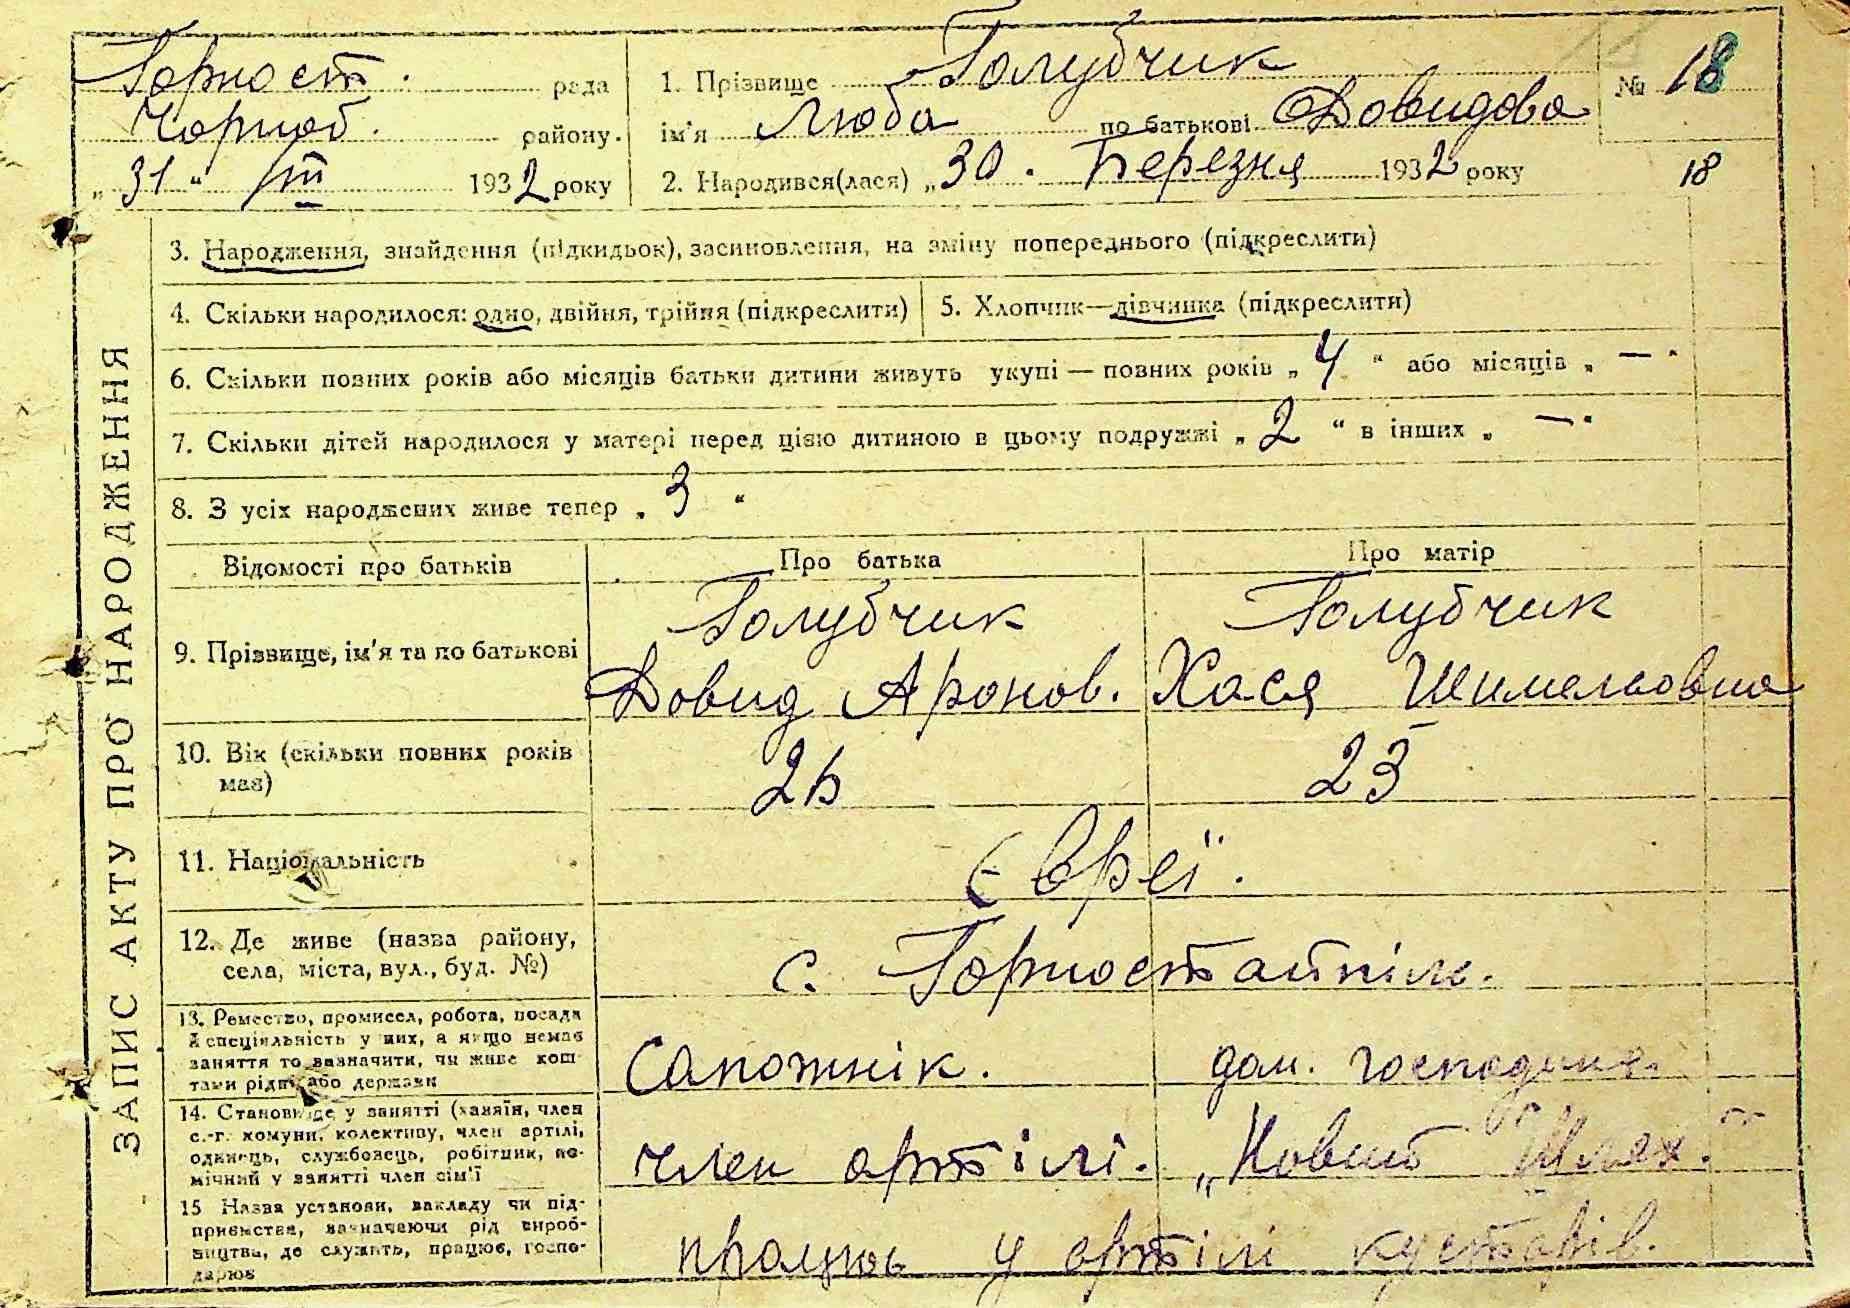 Горност. рада
Чорноб. району.
„31" III 1932 року
1. Прізвище Голубчик
ім'я Люба по батькові Довидова
2. Народився(лася) „30. Березня 1932 року
№ 18
18
ЗАПИС АКТУ ПРО НАРОДЖЕННЯ
3. Народження, знайдення (підкидьок), засиновлення, на зміну попереднього (підкреслити)
4. Скільки народилося: одно, двійня, трійня (підкреслити)
5. Хлопчик—дівчинка (підкреслити)
6. Скільки повних років або місяців батьки дитини живуть укупі — повних років „4" або місяців „—"
7. Скільки дітей народилося у матері перед цією дитиною в цьому подружжі „2" в інших „—"
8. З усіх народжених живе тепер „3"
Відомості про батьків
Про батька
Про матір
9. Прізвище, ім'я та по батькові
Голубчик
Довид Аронов.
Голубчик
Хася Шимельовна
10. Вік (скільки повних років
має)
23
11. Національність
Євреї.
12. Де живе (назва району,
села, міста, вул., буд. №)
с. Горностайпіль.
13. Ремество, промисел, робота, посада
й спеціяльність у них, а якщо немає
заняття то вазначити, чи живе кош
тами рідні або держави
Сапожнік.
дом. господиня.
14. Становище у занятті (хазяїн, член
с.-г. комуни, колективу, член артілі,
одинець, службовець, робітник, по-
мічний у занятті член сім'ї
член артілі. „Новий Шлях."
15 Назва установи, закладу чи під-
приємства, вазначаючи рід вироб-
ництва, де служить, працює, госпо-
дарює
працює у артілі кустарів.